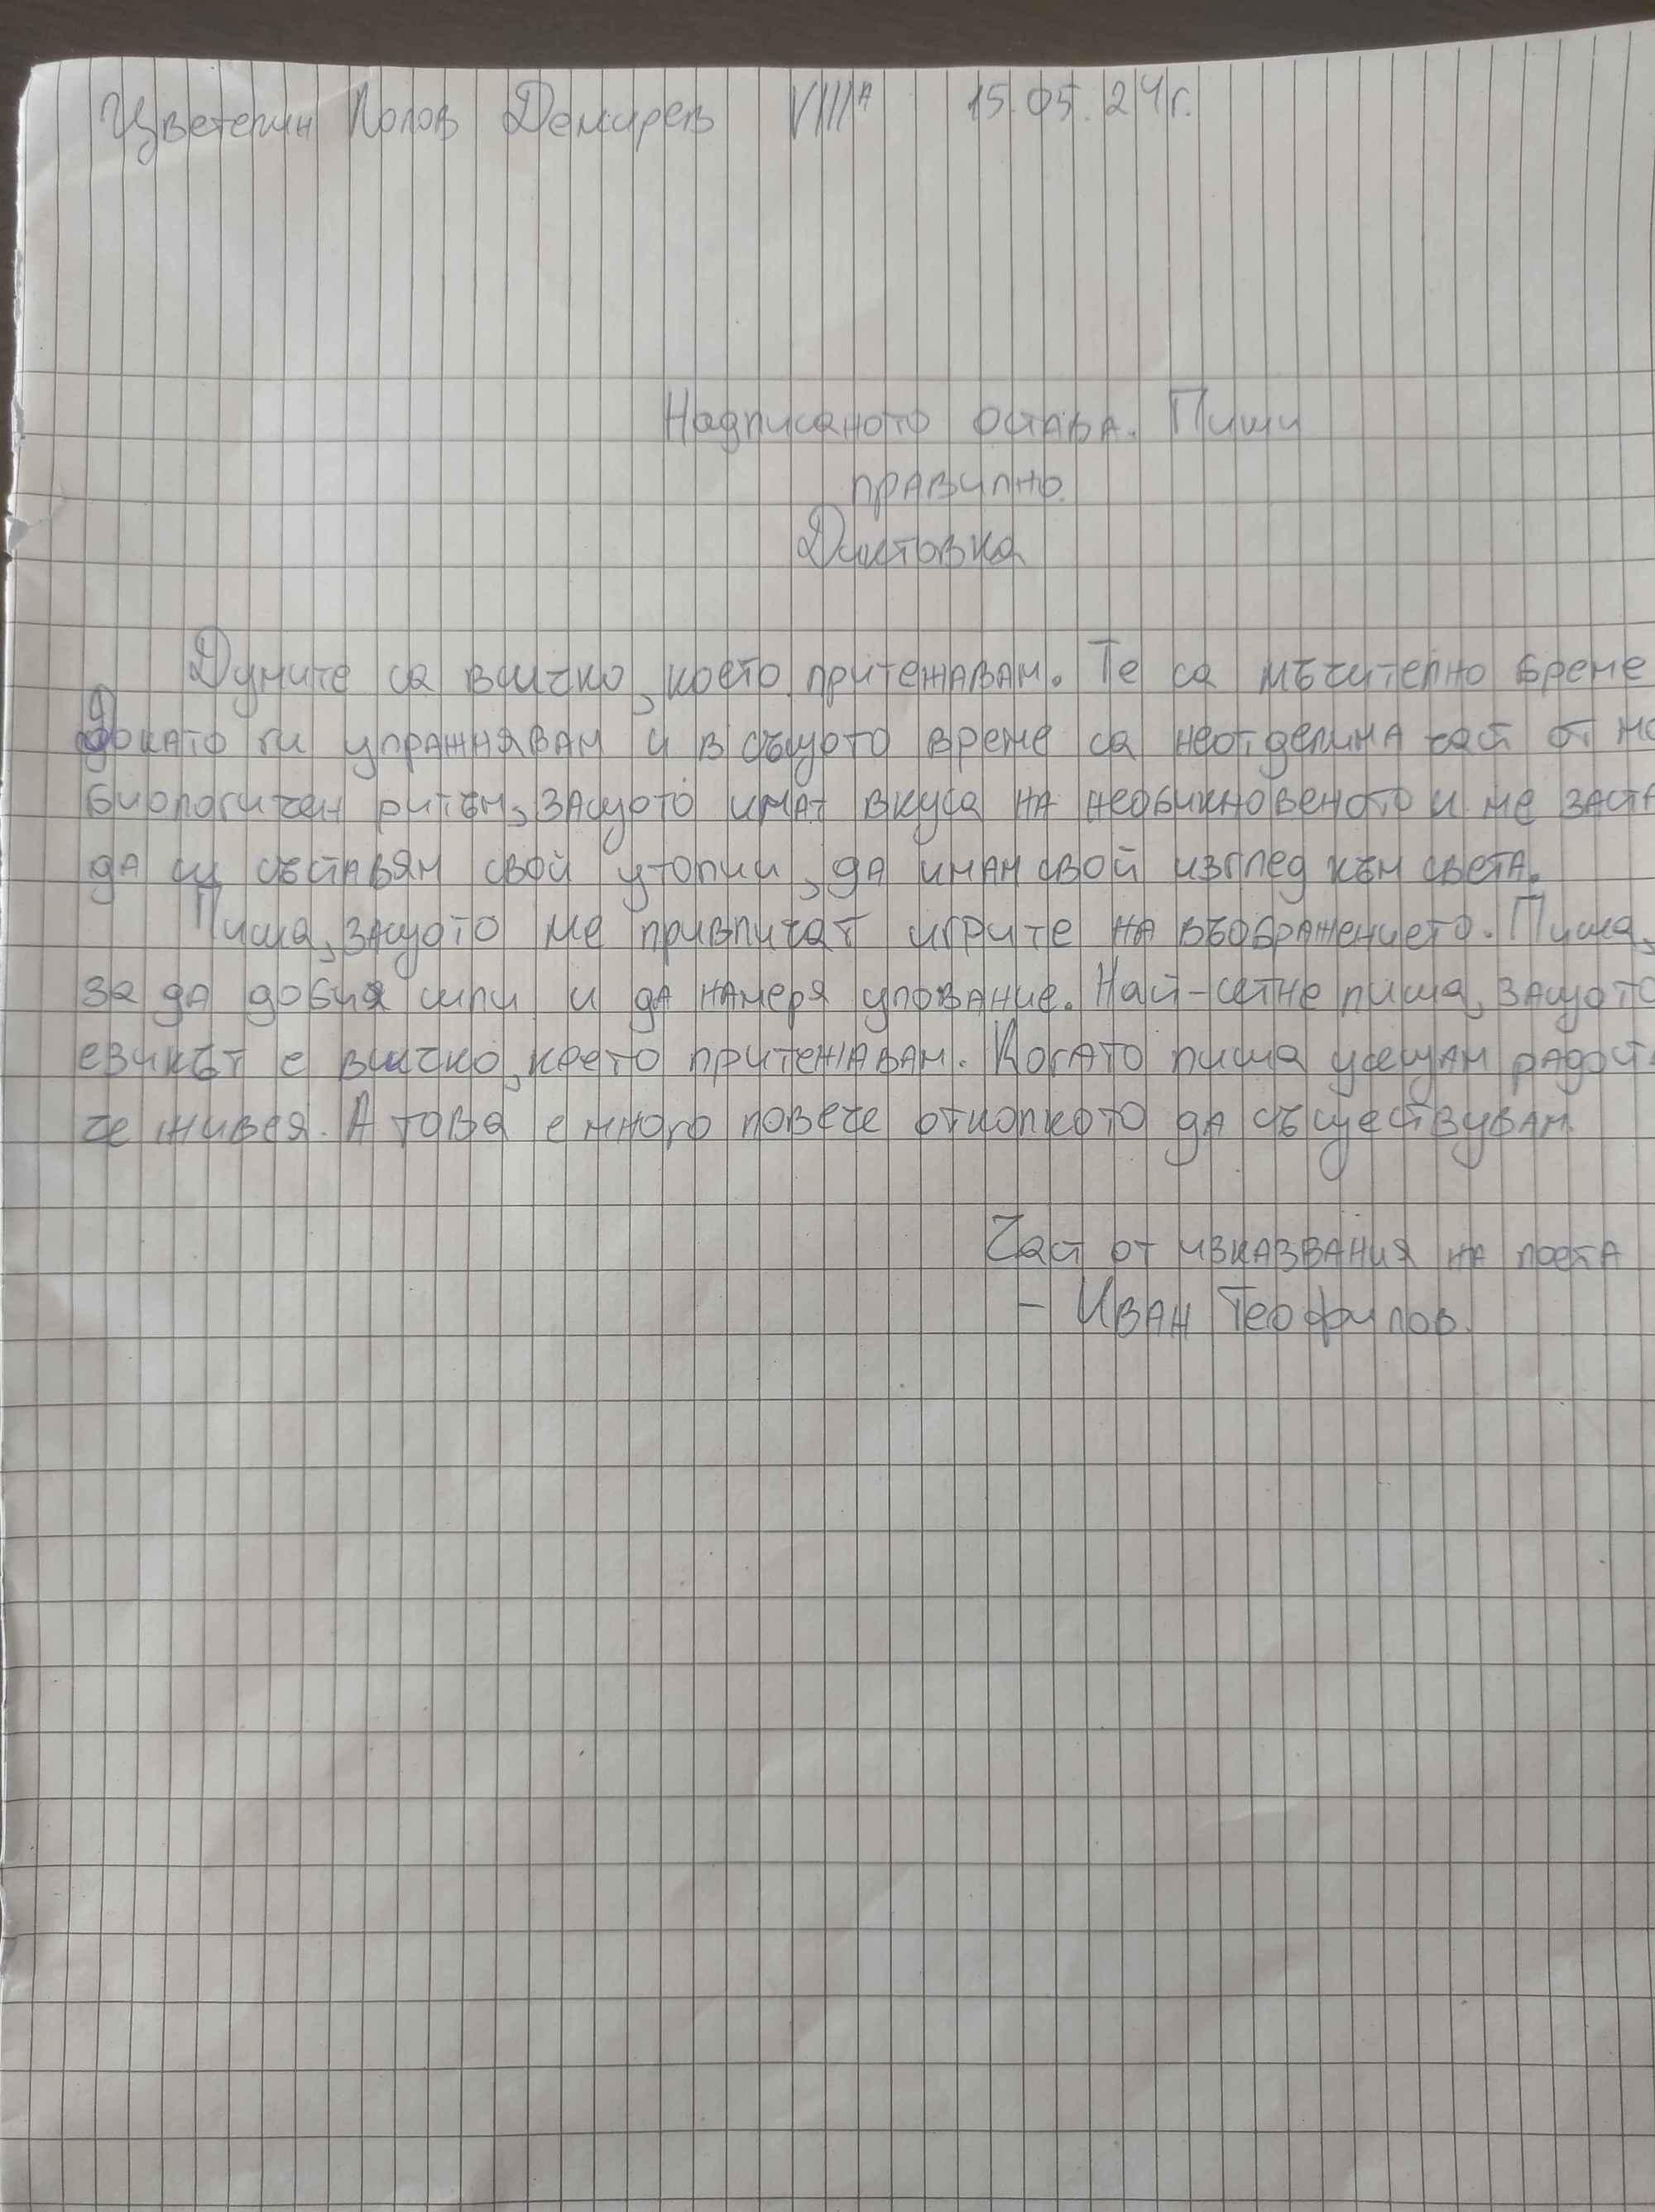 Цветелин Попов Демирев VIIIА 15.05.24г.
Надписаното остава. Пиши
правилно.
Диктовка
Думите са всичко, което притежавам. Те са мъчително време
Докато ги упражнявам и в същото време са неотделима част от мо
биологичен ритъм, защото имат вкуса на необикновеното и ме заста
да си съставям свой утопии, да имам свой изглед към света.
Пиша, защото ме привличат игрите на въображението. Пиша,
за да добия сили и да намеря упование. Най-сетне пиша, защото
езикът е всичко, което притежавам. Когато пиша усещам радост
че живея. А това е много повече отколкото да съществувам
Част от изказвания на поета
- Иван Теофилов.